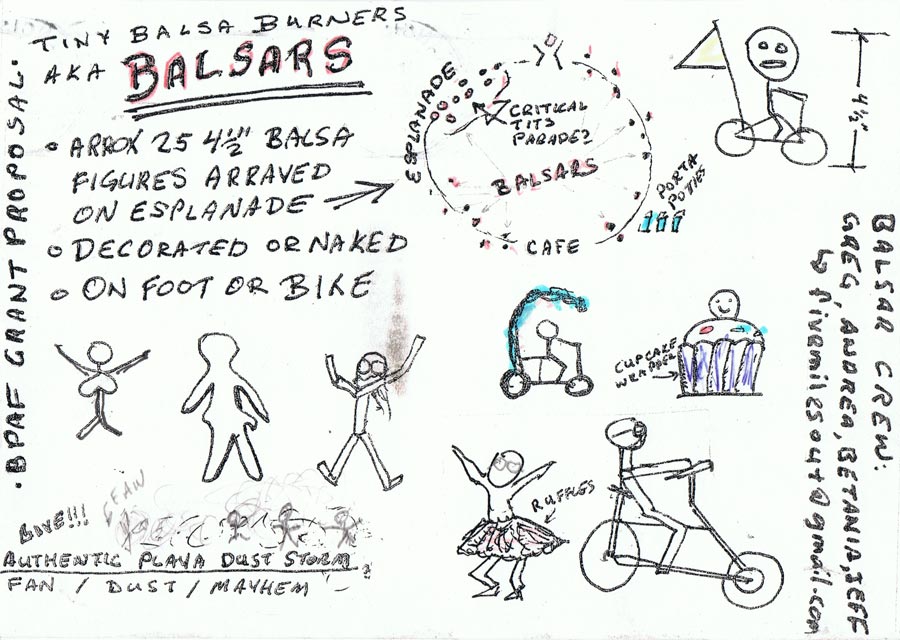 TINY BALSA BURNERS
AKA BALSARS
• ARROX 25 4½" BALSA
FIGURES ARRAVED
ON ESPLANADE
• DECORATED OR NAKED
• ON FOOT OR BIKE
• BPAF GRANT PROPOSAL •
ESPLANADE
CRITICAL
TITS
PARADE?
BALSARS
PORTA
POTIES
CAFE
4½"
CUPCAKE
WRAPPER
RUFFLES
LIVE!!!
FAN
AUTHENTIC PLAYA DUST STORM
FAN / DUST / MAYHEM
BALSAR CREW:
GREG, ANDREA, BETANIA, JEFF
↳ fivemilesout@gmail.com